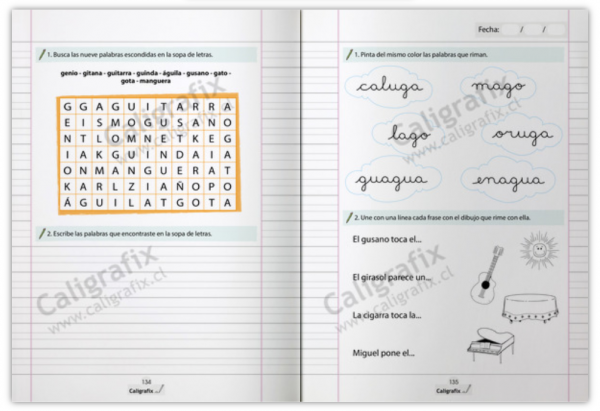 1. Busca las nueve palabras escondidas en la sopa de letras.
genio - gitana - guitarra - guinda - águila - gusano - gato -
gota - manguera
G G A G U I T A R R A
E I S M O G U S A N O
N T L O M N E T K E G
I A K G U I N D A I A
O N M A N G U E R A T
K A R L Z I A Ñ O P O
Á G U I L A T G O T A
2. Escribe las palabras que encontraste en la sopa de letras.
Caligrafix
www.caligrafix.cl
134
Caligrafix
Fecha: / /
1. Pinta del mismo color las palabras que riman.
caluga mago
lago oruga
guagua enagua
2. Une con una línea cada frase con el dibujo que rime con ella.
El gusano toca el...
El girasol parece un...
La cigarra toca la...
Miguel pone el...
Caligrafix
www.caligrafix.cl
135
Caligrafix